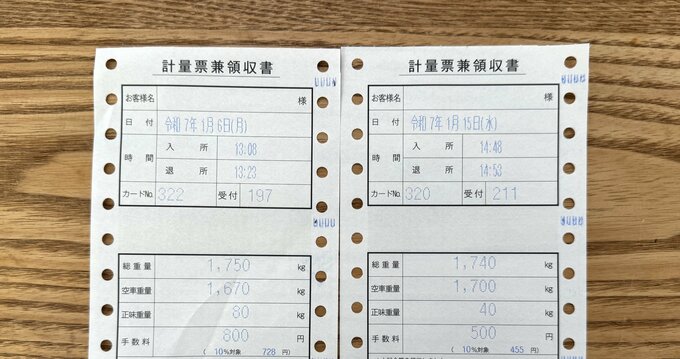 計量票兼領収書
お客様名 様
日付 令和 7年 1月 6日(月)
時間 入所 13:08
退所 13:23
カードNo. 322 受付 197
総重量 1,750 kg
空車重量 1,670 kg
正味重量 80 kg
手数料 800 円
( 10%対象 728 円)
計量票兼領収書
お客様名 様
日付 令和 7年 1月 15日(水)
時間 入所 14:48
退所 14:53
カードNo. 320 受付 211
総重量 1,740 kg
空車重量 1,700 kg
正味重量 40 kg
手数料 500 円
( 10%対象 455 円)